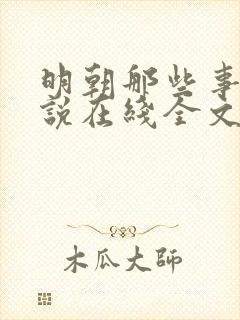 明朝那些事
說在綫全文
木瓜大师